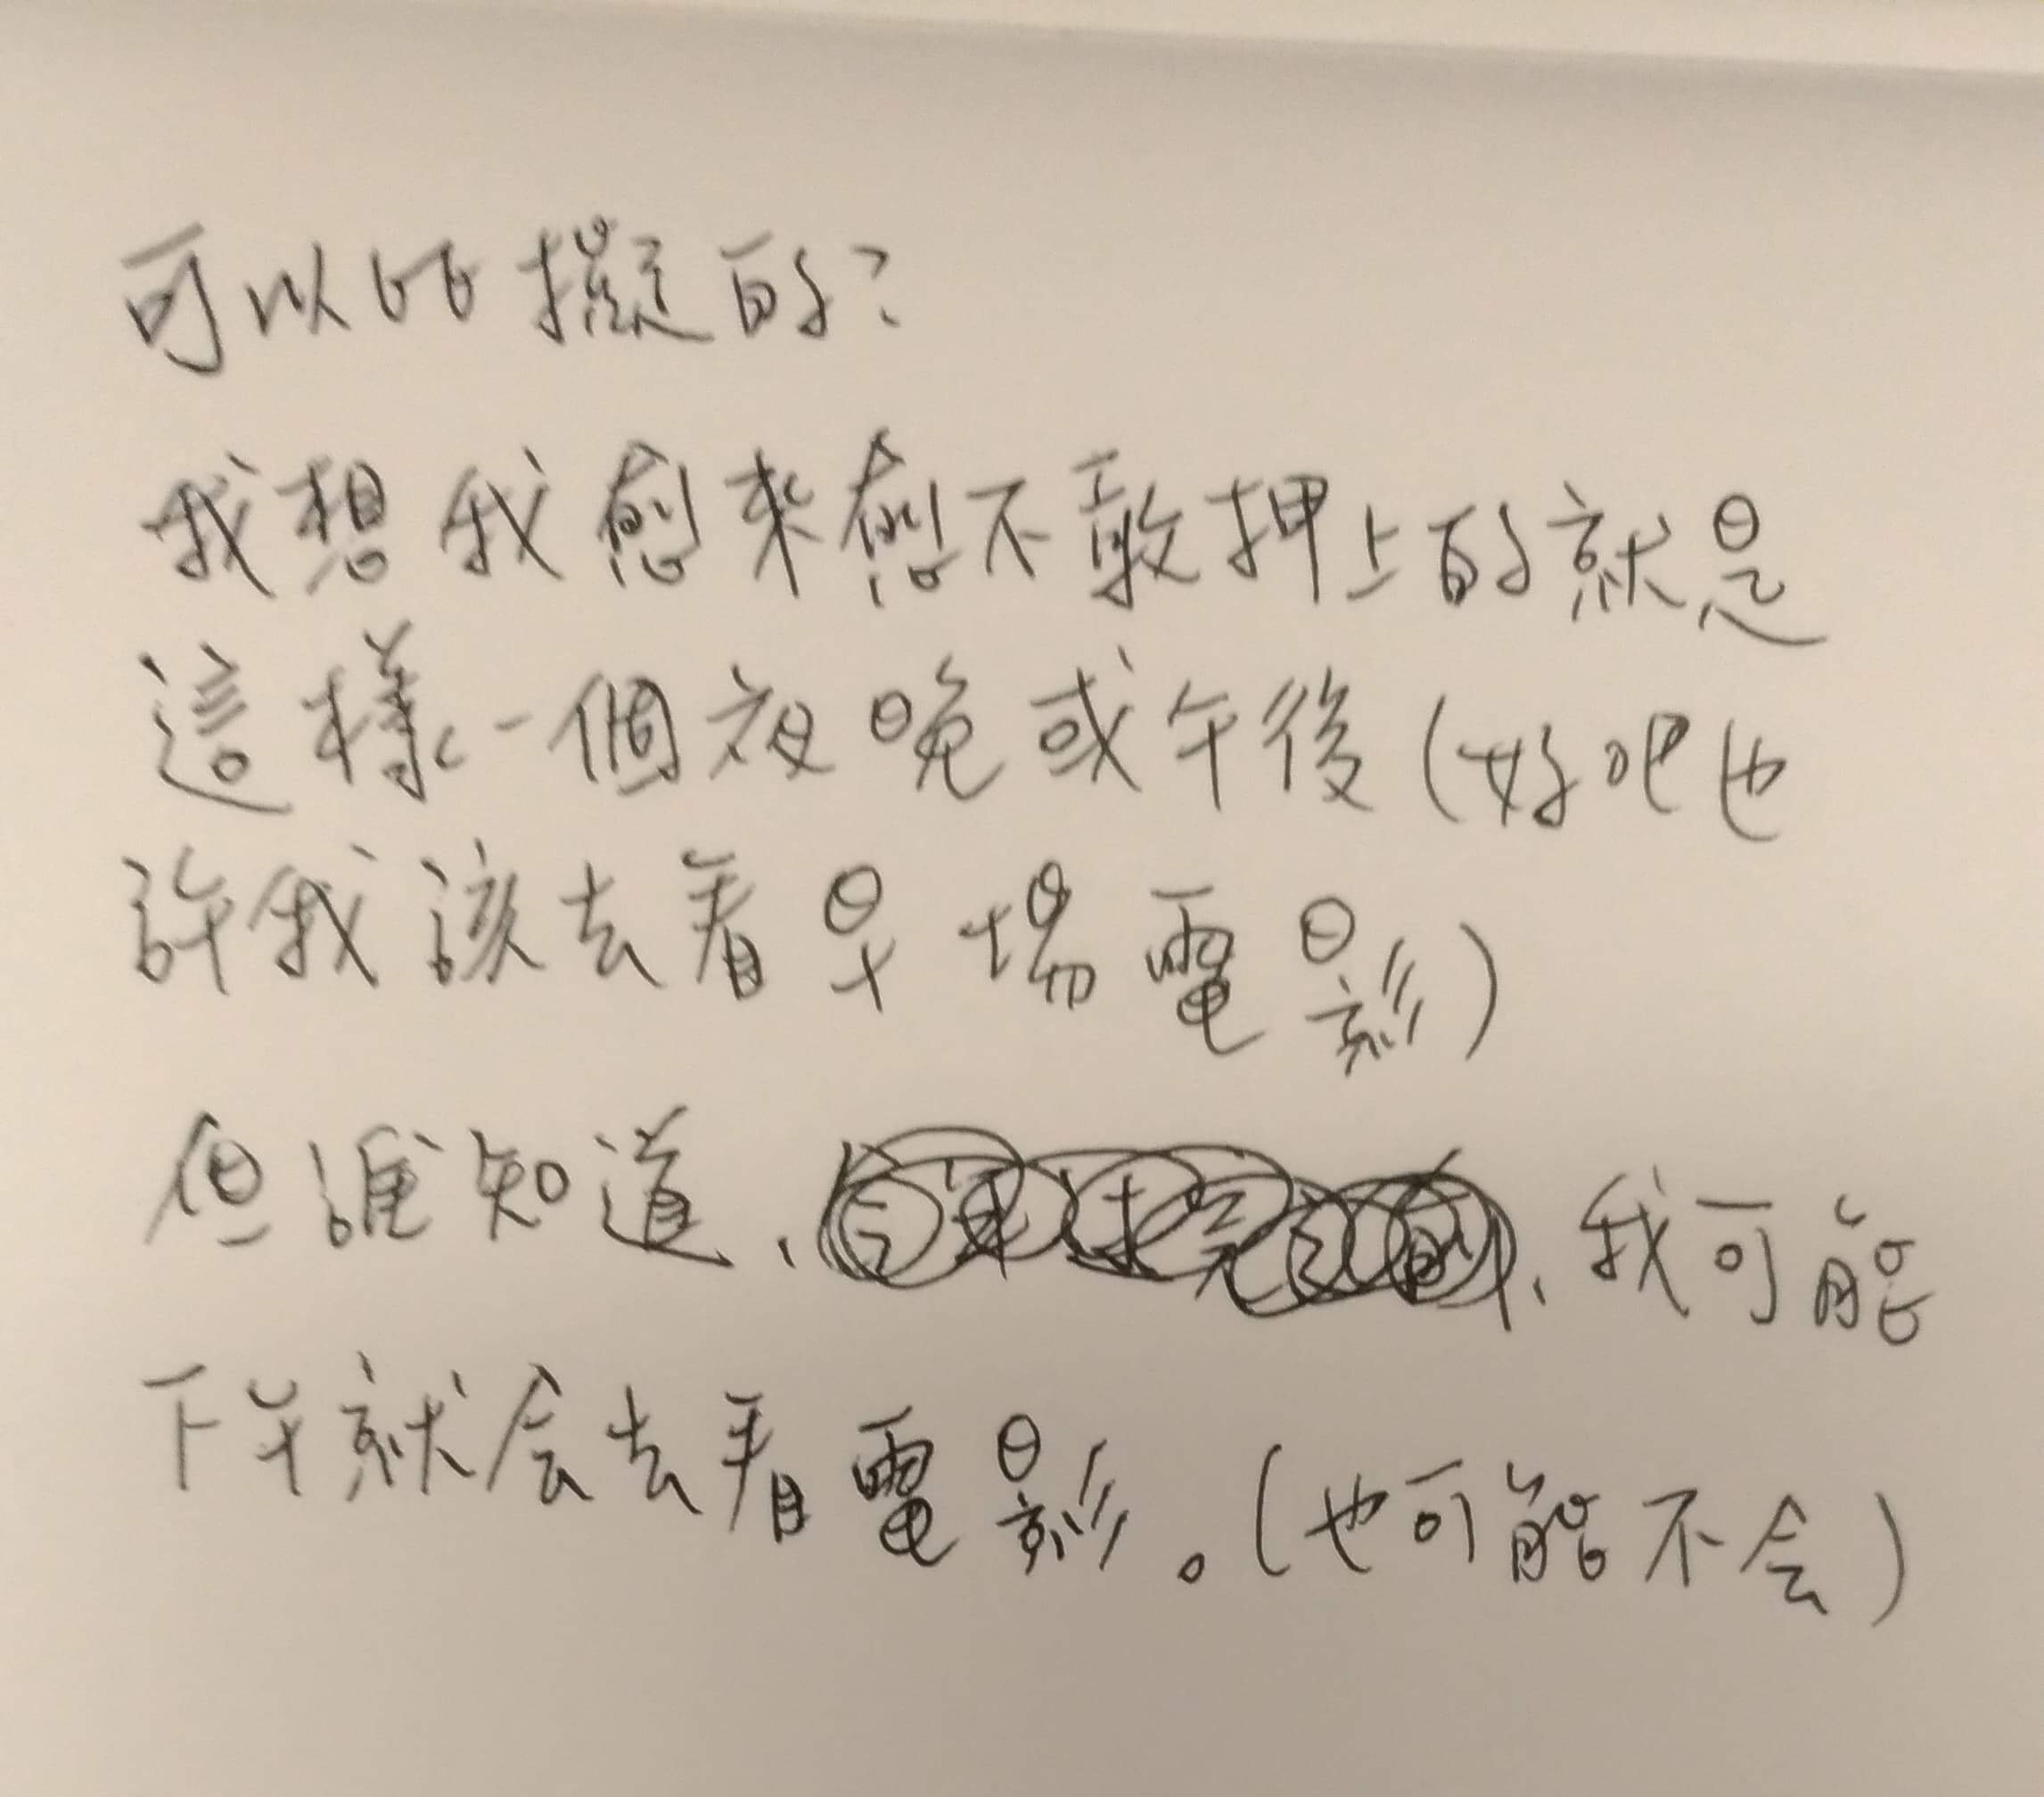 可以比擬的？
我想我愈來愈不敢押上的就是
這樣一個夜晚或午後（好吧也
許我該去看早場電影）
但誰知道、、我可能
下午就会去看電影。（也可能不会）